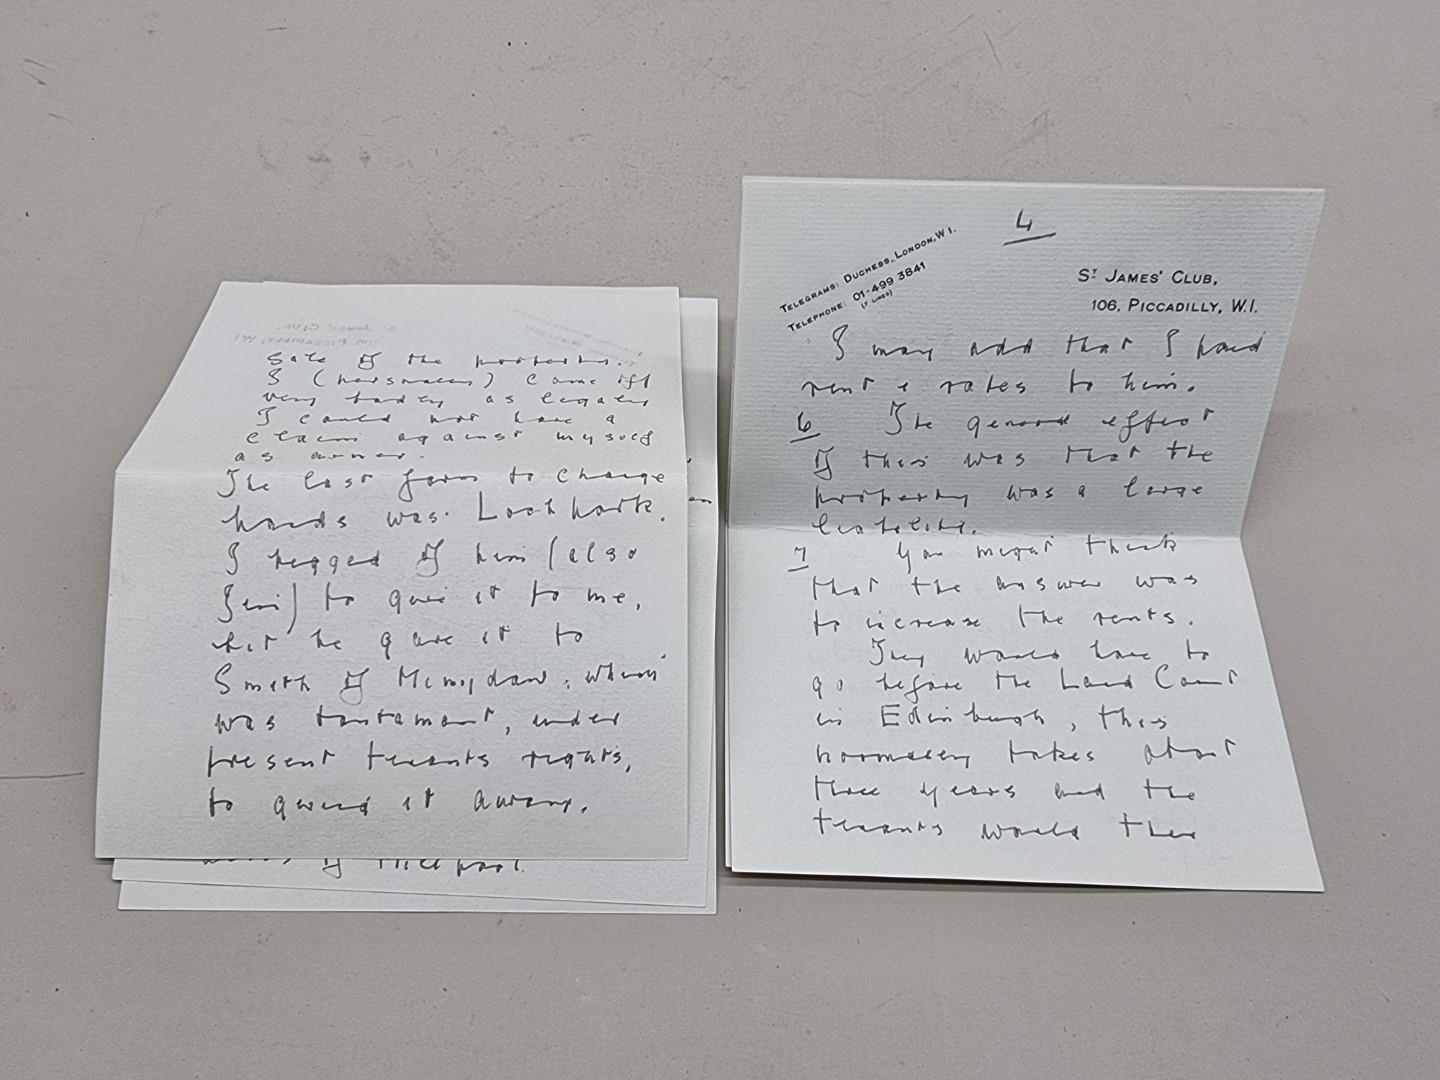 Sale of the properties.
I (personally) came off
very badly as legally
I could not have a
claim against myself
as owner.
The last farm to change
hands was Lochpark.
I begged of him (also
Jim) to give it to me,
but he gave it to
Smith of
was tantamount, under
present tenants rights,
to giving it away.
of Millpool.
4
TELEGRAMS: DUCHESS, LONDON, W1.
TELEPHONE: 01-499 3841
(7 LINES)
ST JAMES' CLUB,
106, PICCADILLY, W.1.
I may add that I paid
rent & rates to him.
6 The general effect
of this was that the
property was a large
liability.
7 You might think
that the answer was
to increase the rents.
They would have to
go before the Land Court
in Edinburgh, this
normally takes about
three years and the
tenants would then